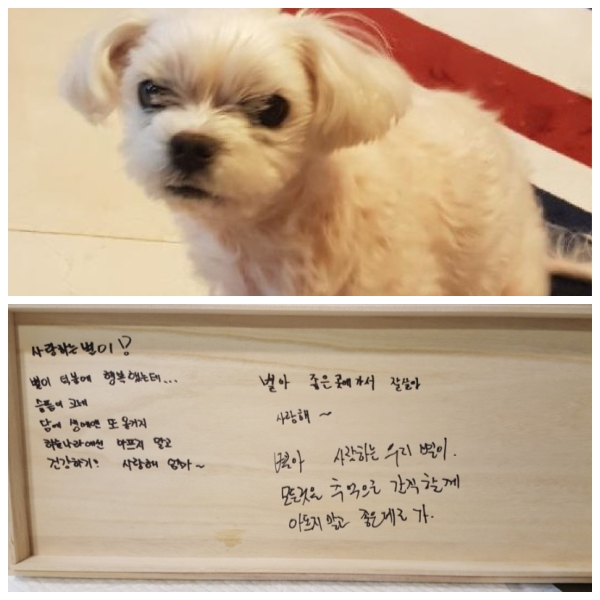 사랑하는 별이!
별이 덕분에 행복했는데...
슬픔이 크네
담에 생에엔 또 올거지
하늘나라에선 아프지 말고
건강하기! 사랑해 엄마~
별아 좋은 곳에 가서 잘살아
사랑해~
별아 사랑하는 우리 별이.
모든것을 추억으로 간직할게
아프지 말고 좋은데로 가.